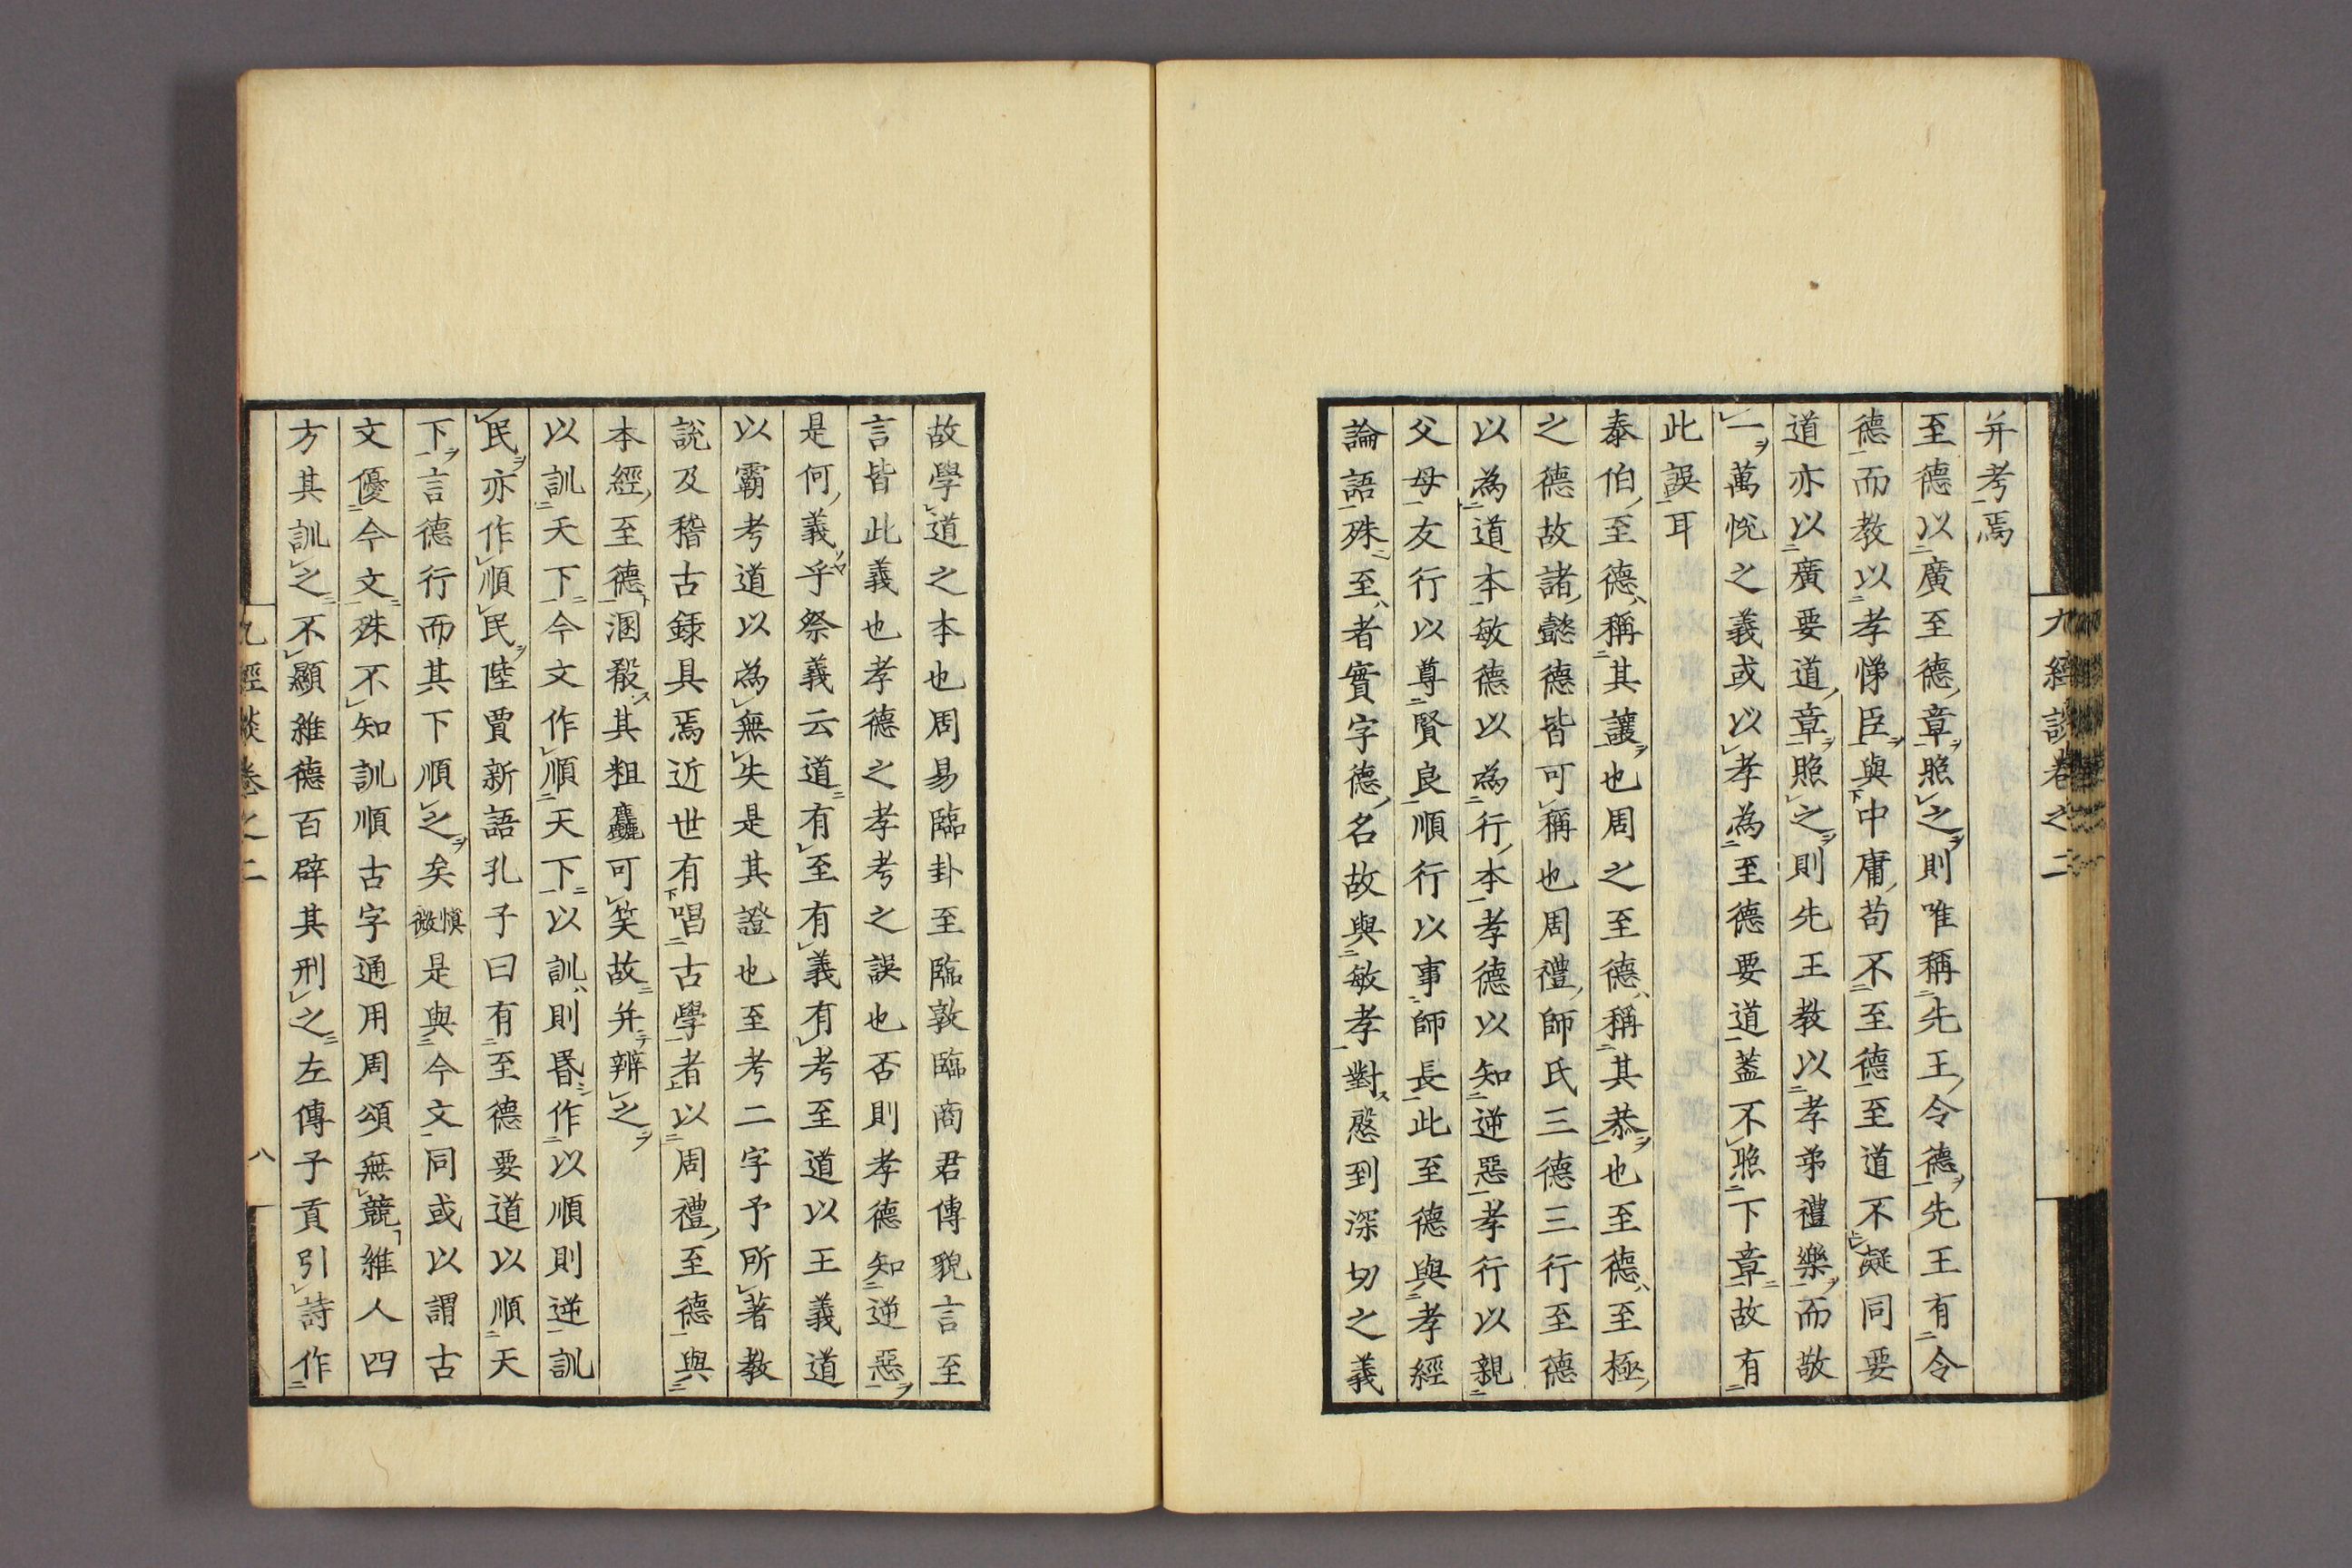 九經談卷之二
并考焉
至德以廣至德章照之則唯稱先王令德先王有令
德而教以孝悌臣與中庸苟不至德至道不凝同要
道亦以廣要道章照之則先王教以孝弟禮樂而敬
一萬悅之義或以孝為至德要道蓋不照下章故有
此誤耳
泰伯至德稱其讓也周之至德稱其恭也至德至極
之德故諸懿德皆可稱也周禮師氏三德三行至德
以為道本敏德以為行本孝德以知逆惡孝行以親
父母友行以尊賢良順行以事師長此至德與孝經
論語殊至者實字德名故與敏孝對慇到深切之義
故學道之本也周易臨卦至臨敦臨商君傳貌言至
言皆此義也孝德之孝考之誤也否則孝德知逆惡
是何義乎祭義云道有至有義有考至道以王義道
以霸考道以為無失是其證也至考二字予所著教
說及稽古録具焉近世有唱古學者以周禮至德與
本經至德溷殽其粗麤可笑故并辨之
以訓天下今文作順天下以訓則昬作以順則逆訓
民亦作順民陸賈新語孔子曰有至德要道以順天
下言德行而其下順之矣慎微是與今文同或以謂古
文優今文殊不知訓順古字通用周頌無競維人四
方其訓之不顯維德百辟其刑之左傳子貢引詩作
九經談卷之二
八